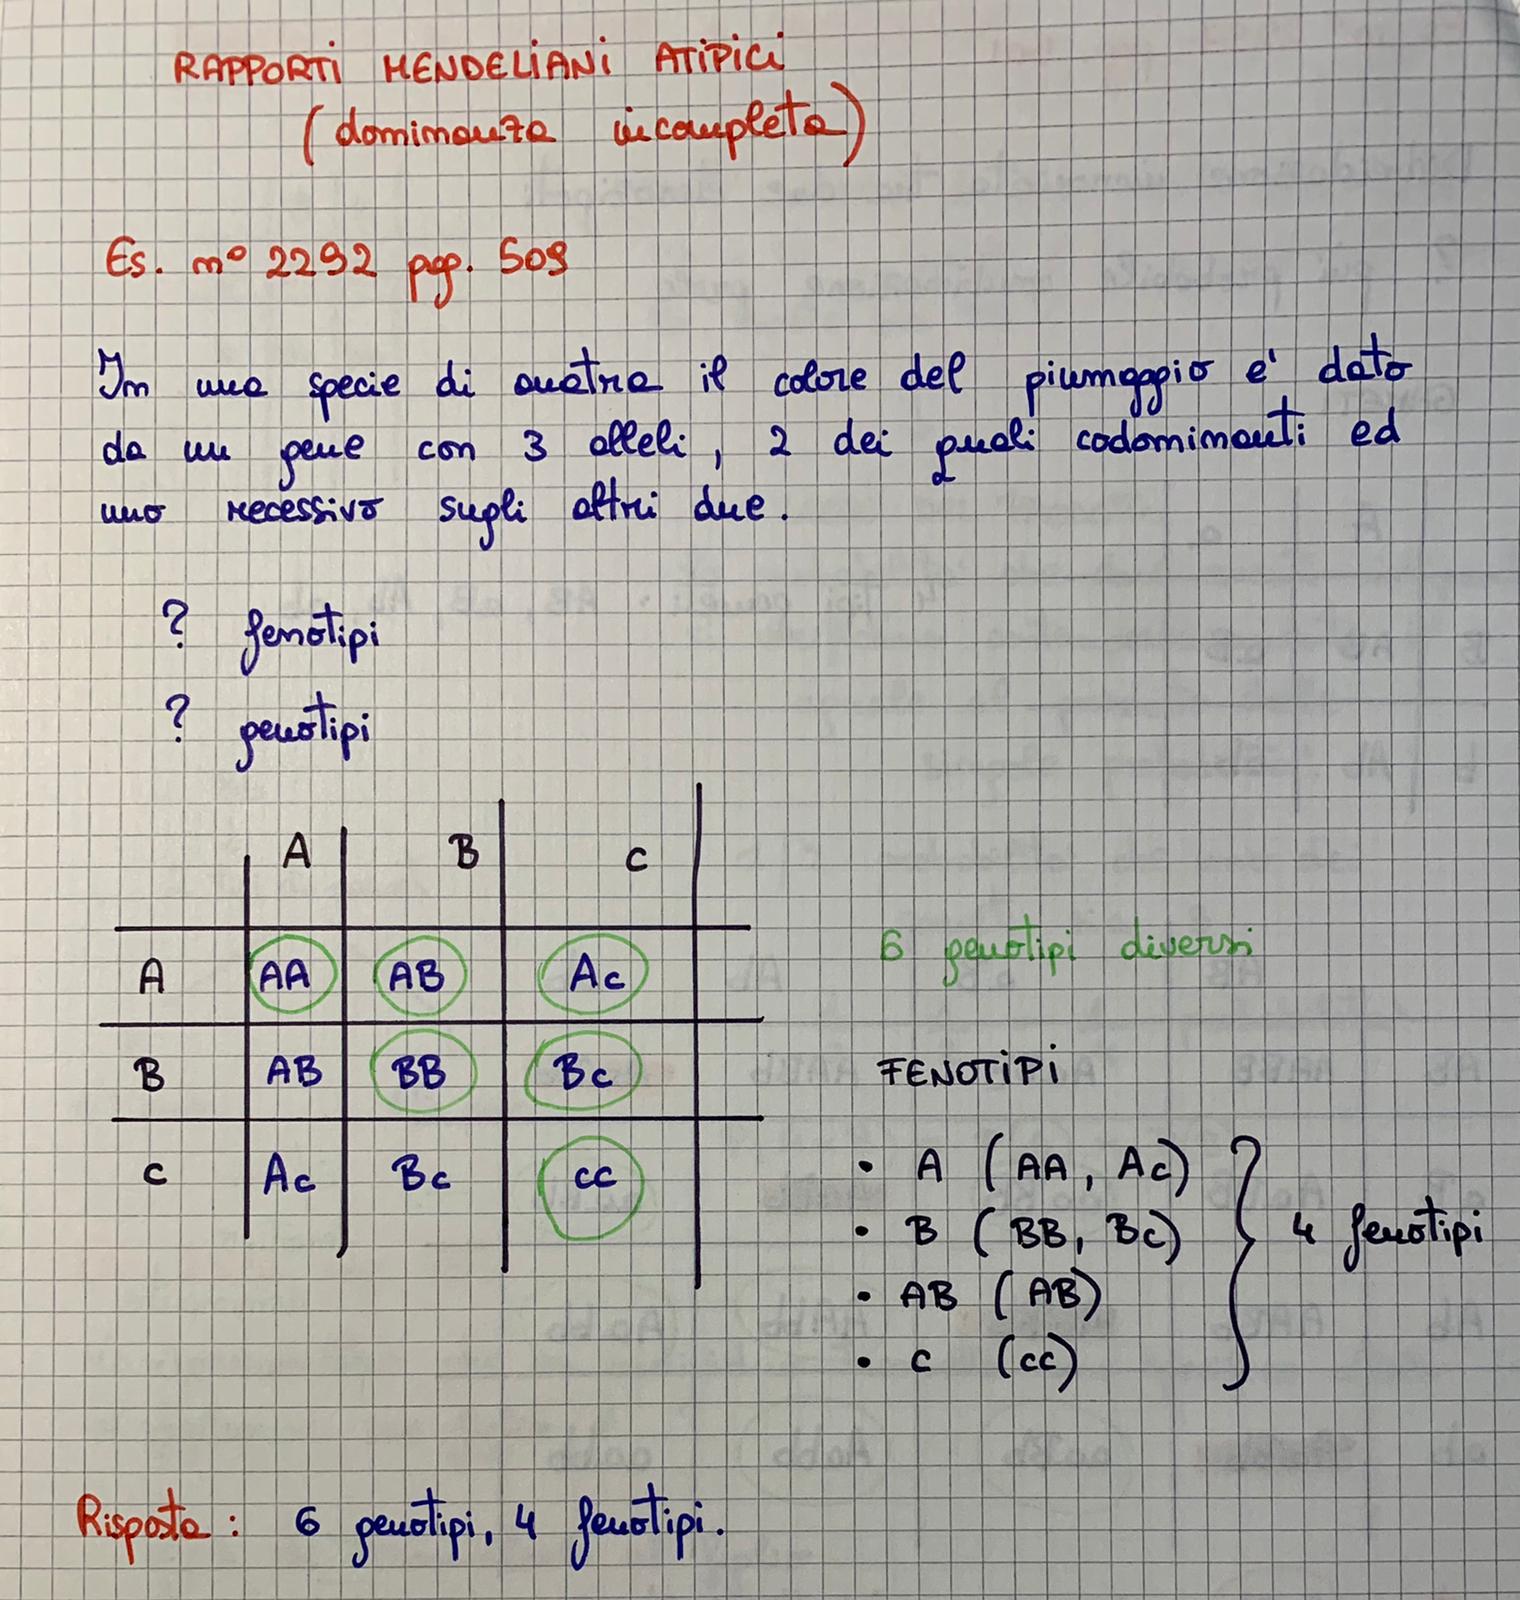 RAPPORTI MENDELIANI ATIPICI
(dominanza incompleta)
Es. n° 2292 pag. 509
In una specie di anatra il colore del piumaggio e' dato
da un gene con 3 alleli, 2 dei quali codominanti ed
uno recessivo sugli altri due.
? fenotipi
? genotipi
A B c
A AA AB Ac
B AB BB Bc
c Ac Bc cc
6 genotipi diversi
FENOTIPI
• A (AA, Ac)
• B (BB, Bc)
• AB (AB)
• c (cc)
4 fenotipi
Risposta: 6 genotipi, 4 fenotipi.